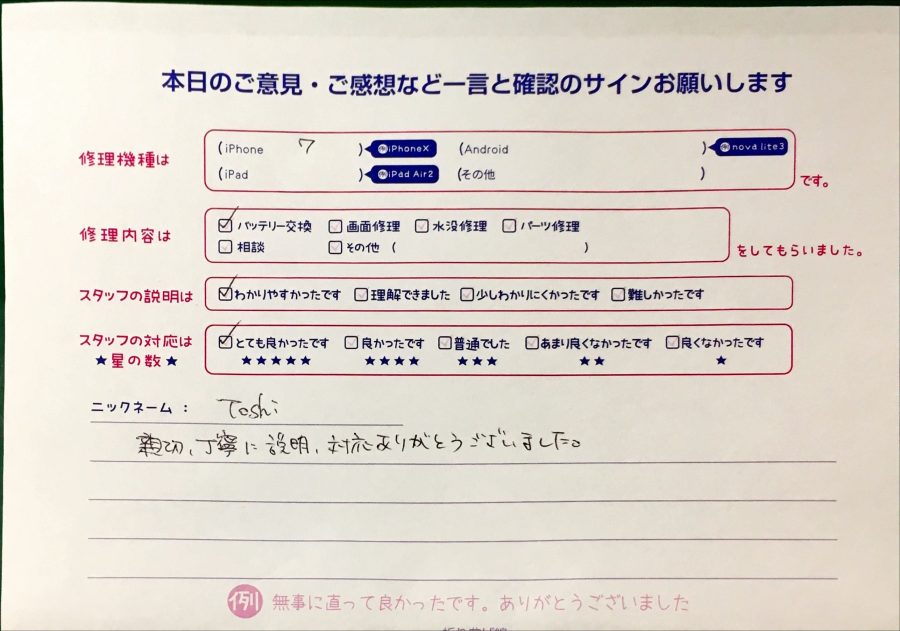 本日のご意見・ご感想など一言と確認のサインお願いします
修理機種は
(iPhone 7 ) 例iPhoneX (Android ) 例nova lite3
(iPad ) 例iPad Air2 (その他 )
です。
修理内容は
☑バッテリー交換 □画面修理 □水没修理 □パーツ修理
□相談 □その他 ( )
をしてもらいました。
スタッフの説明は ☑わかりやすかったです □理解できました □少しわかりにくかったです □難しかったです
スタッフの対応は ☑とても良かったです □良かったです □普通でした □あまり良くなかったです □良くなかったです
★星の数★ ★★★★★ ★★★★ ★★★ ★★ ★
ニックネーム： Toshi
親切、丁寧に説明、対応ありがとうございました。
例 無事に直って良かったです。ありがとうございました